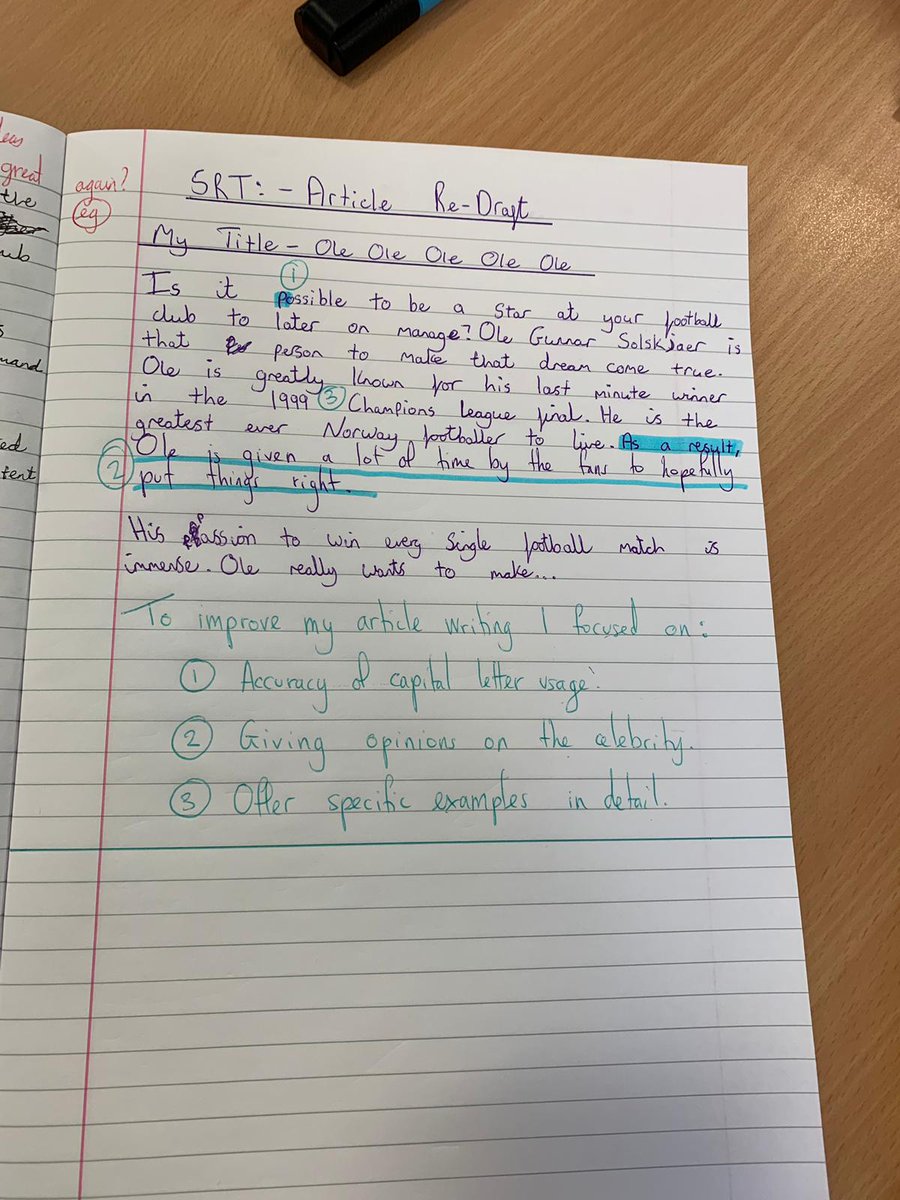 leas
great
the
ub
mand
ed
tent
again?
eg
SRT:- Article Re-Draft
My Title - Ole Ole Ole Ole Ole
1
Is it possible to be a star at your football
club to later on manage? Ole Gunnar Solskjaer is
that person to make that dream come true.
Ole is greatly known for his last minute winner
in the 1999 3 Champions League final. He is the
greatest ever Norway footballer to live. As a result,
2 Ole is given a lot of time by the fans to hopefully
put things right.
His Passion to win every single football match is
immense. Ole really wants to make...
To improve my article writing I focused on:
1 Accuracy of capital letter usage.
2 Giving opinions on the celebrity.
3 Offer specific examples in detail.